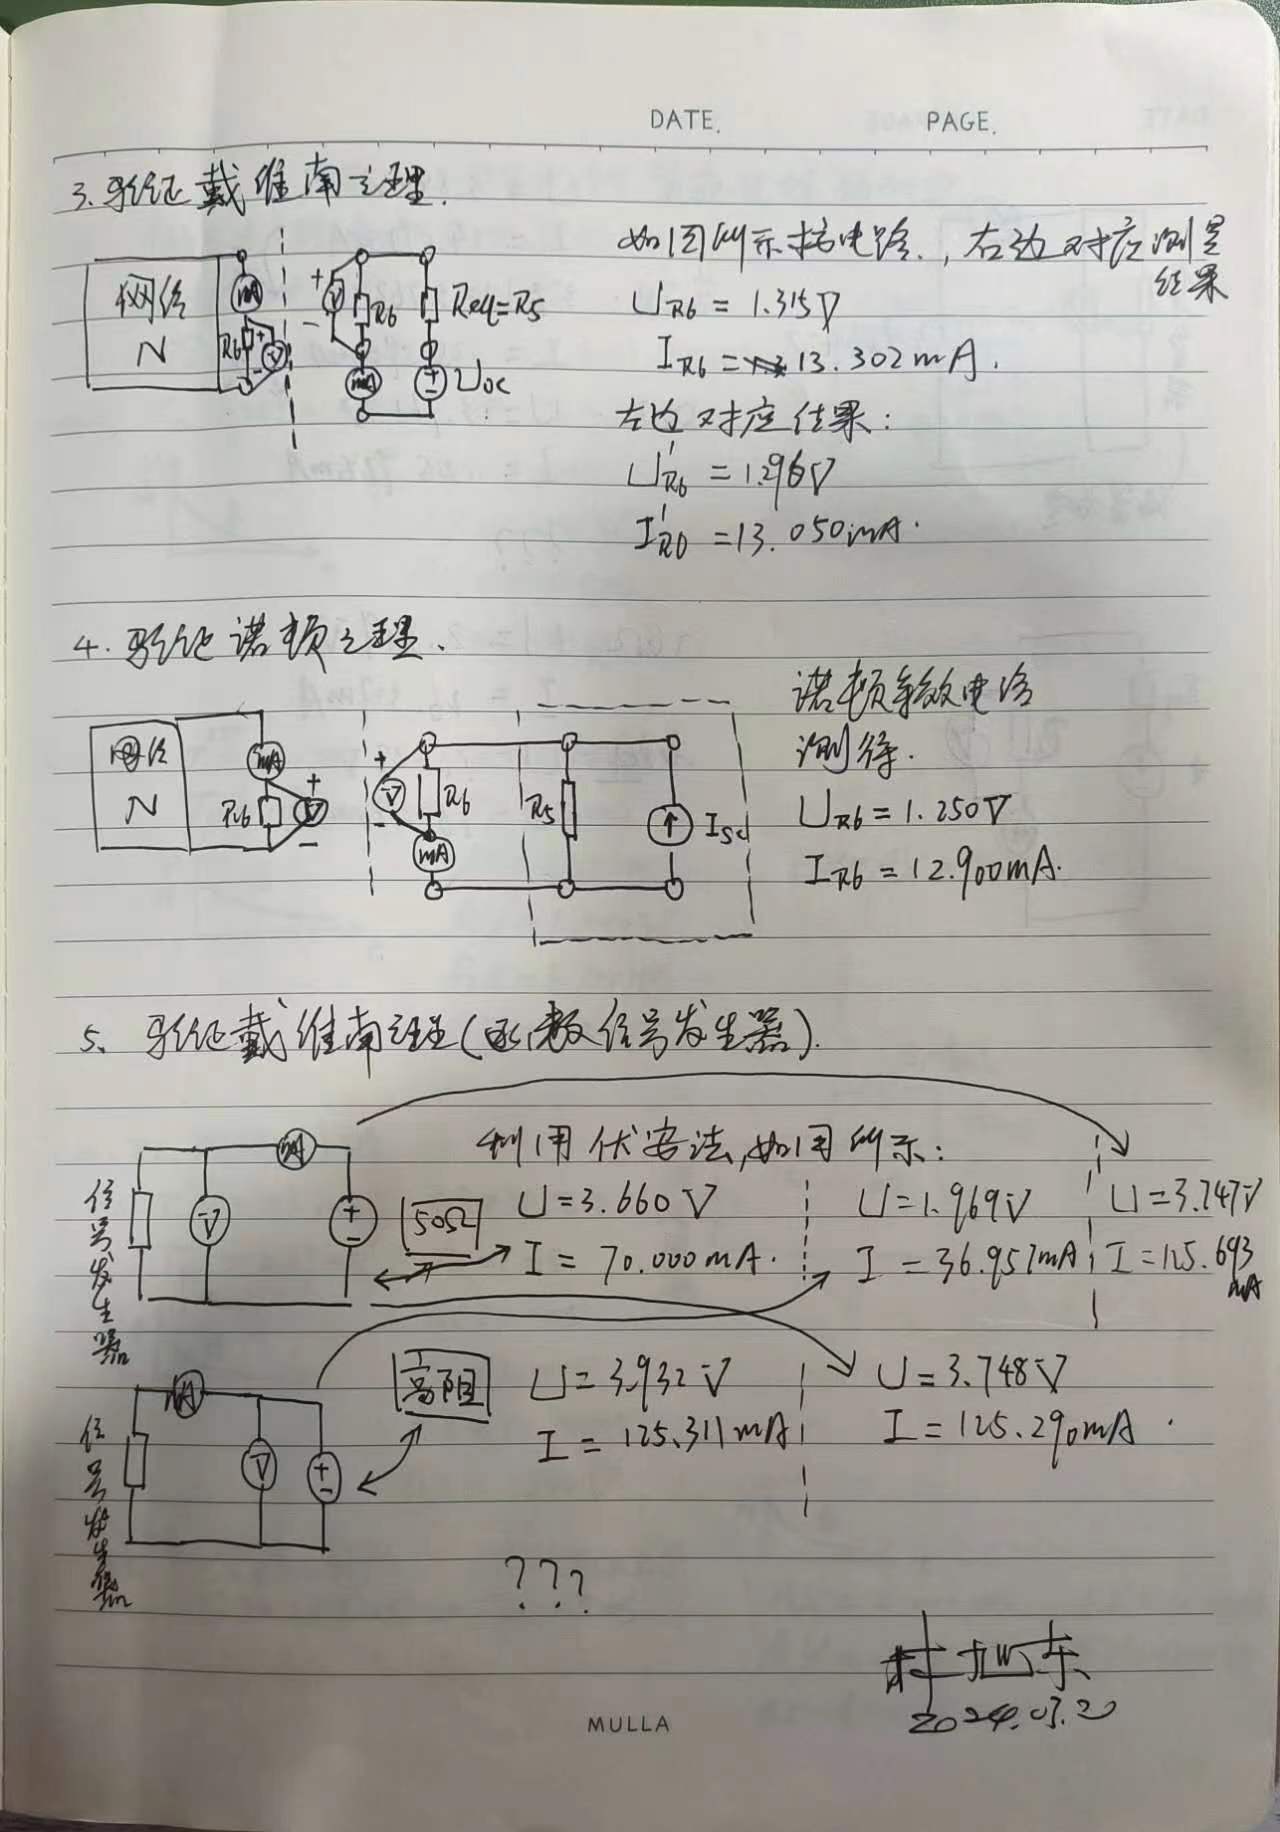 DATE.
PAGE.
3. 验证戴维南定理.
网络
N
mA
R6
+
V
-
+
V
-
R6
mA
Req=R5
+
-
Uoc
如图所示接电路., 右边对应测量
结果
UR6 = 1.315V
IR6 = 13.302mA.
左边对应结果:
U'R6 = 1.296V
I'R6 = 13.050mA.
4. 验证诺顿定理.
网络
N
mA
R6
+
V
-
+
V
-
R6
mA
R5
Isc
诺顿等效电路
测得.
UR6 = 1.250V
IR6 = 12.900mA.
5、验证戴维南定理(函数信号发生器).
利用伏安法,如图所示:
信号发生器
V
mA
+
-
50Ω
U=3.660V
I = 70.000mA.
U=1.969V
I = 36.957mA
U=3.747V
I=125.693
mA
信号发生器
mA
V
+
-
高阻
U=3.932V
I = 125.311mA
U=3.748V
I=125.290mA.
???
2024.03.20
MULLA